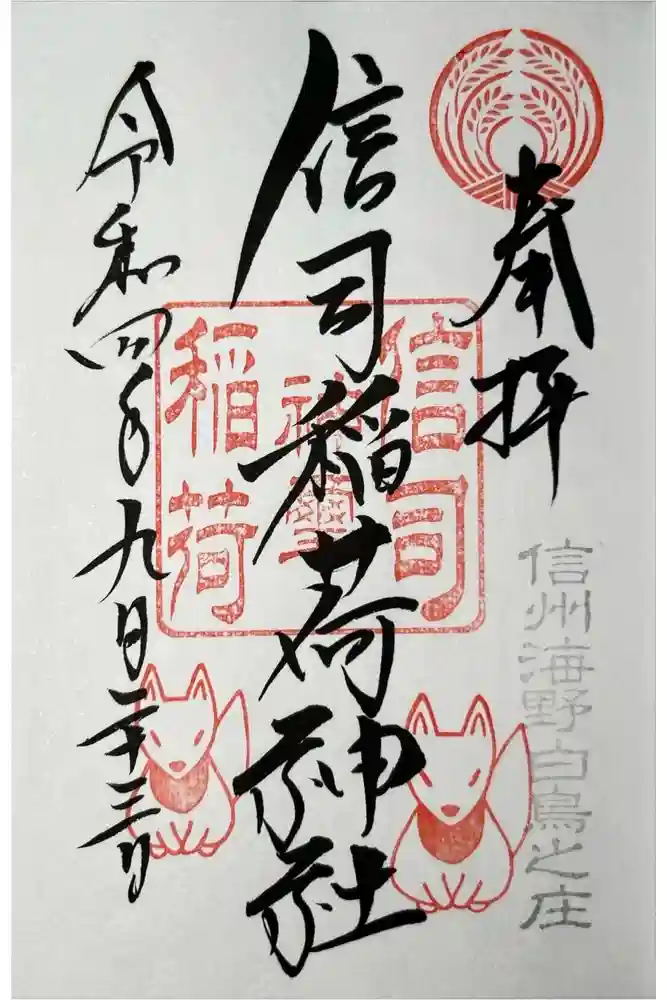 奉拝
信州海野白鳥之庄
信司稲荷神社
信司
神
稲荷
令和四年九月二十三日